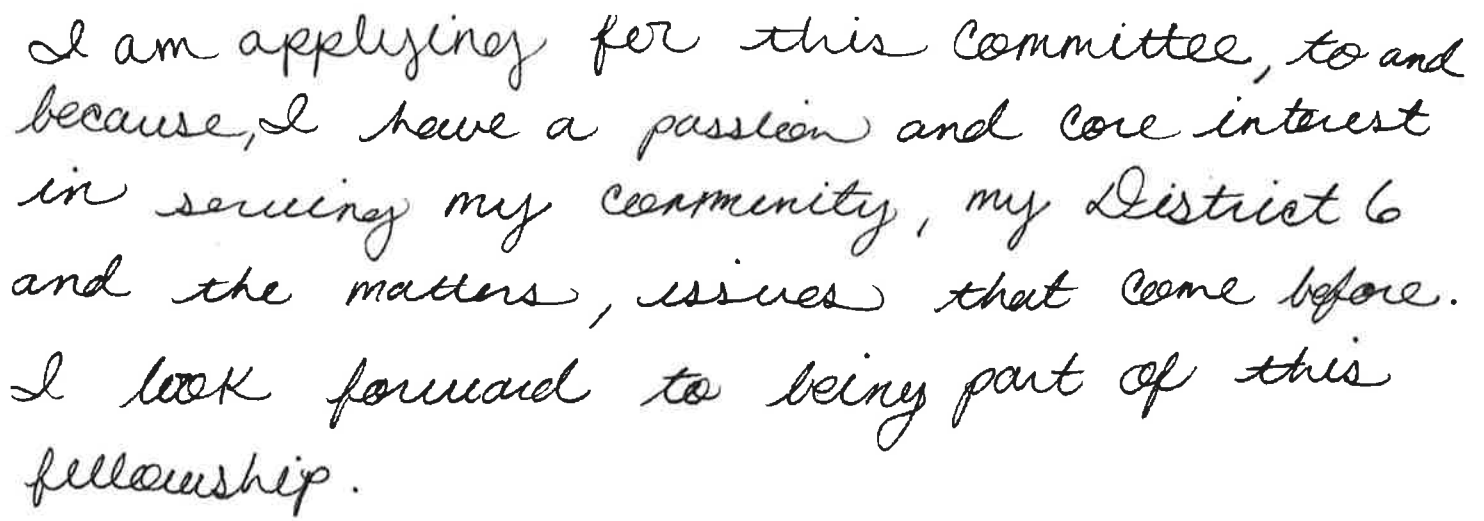 I am applying for this committee, to and
because, I have a passion and core interest
in serving my community, my District 6
and the matters, issues that come before.
I look forward to being part of this
fellowship.